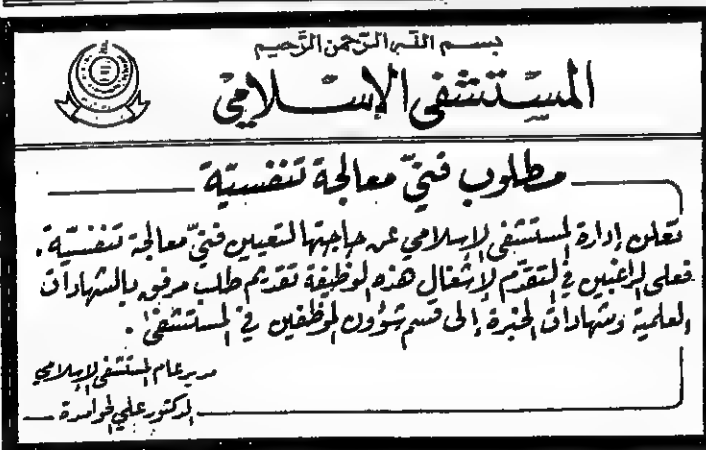 بسم الله الرحمن الرحيم
المستشفى الإسلامي
مطلوب فنيّ معالجة تنفسيّة
تعلن إدارة المستشفى الإسلامي عن حاجتها لتعيين فنيّ معالجة تنفسيّة.
فعلى الراغبين في التقدّم لإشغال هذه الوظيفة تقديم طلب مرفق بالشهادات
العلمية وشهادات الخبرة إلى قسم شؤون الموظفين في المستشفى.
مدير عام المستشفى الإسلامي
الدكتور علي الحوامدة